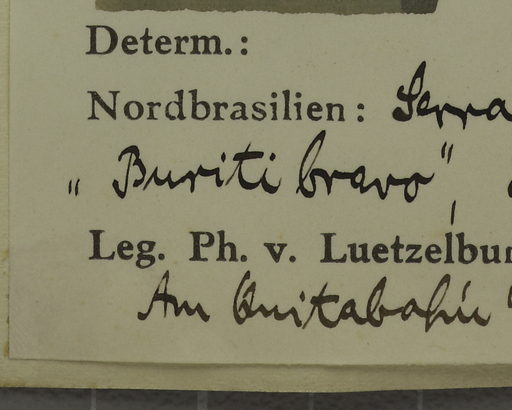 Determ.:
Nordbrasilien: Serra
„Buriti bravo",
Leg. Ph. v. Luetzelbur
Am